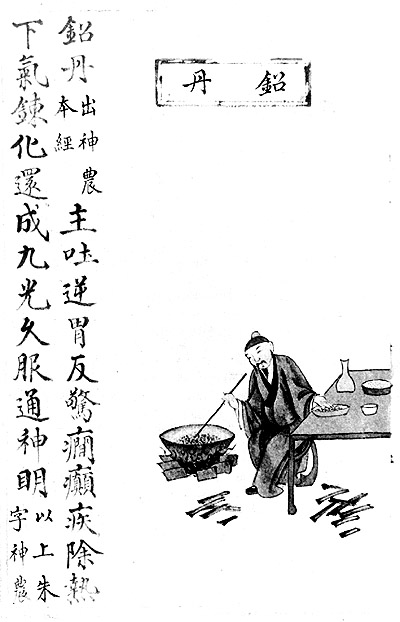 鉛丹
鉛丹出神農本經主吐逆胃反驚癇癲疾除熱
下氣鍊化還成九光久服通神明以上朱字神農